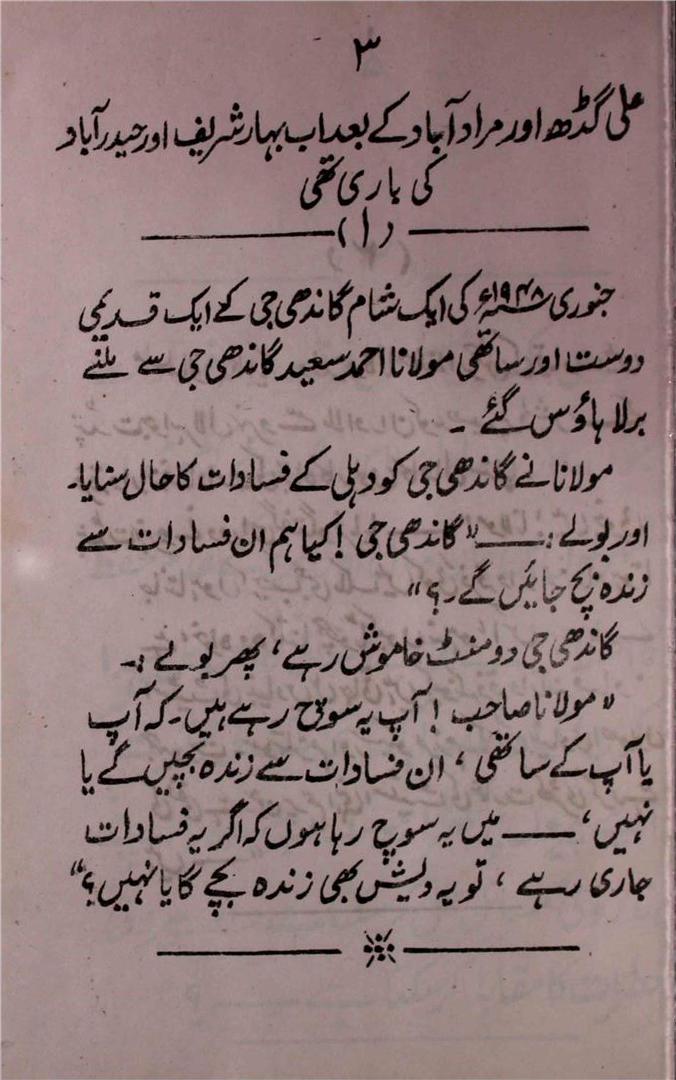 ۳
علی گڈھ اور مراد آباد کے بعد اب بہار شریف اور حیدر آباد
کی باری تھی
(۱)
جنوری ۱۹۴۸ء کی ایک شام گاندھی جی کے ایک قدیمی
دوست اور ساتھی مولانا احمد سعید گاندھی جی سے ملنے
برلا ہاؤس گئے ۔
مولانا نے گاندھی جی کو دہلی کے فسادات کا حال سنایا۔
اور بولے :۔ــــ "گاندھی جی ! کیا ہم ان فسادات سے
زندہ بچ جائیں گے۔؟"
گاندھی جی دو منٹ خاموش رہے، پھر بولے :۔
"مولانا صاحب ! آپ یہ سوچ رہے ہیں۔ کہ آپ
یا آپ کے ساتھی، ان فسادات سے زندہ بچیں گے یا
نہیں، ــــ میں یہ سوچ رہا ہوں کہ اگر یہ فسادات
جاری رہے، تو یہ دیش بھی زندہ بچے گا یا نہیں؟"